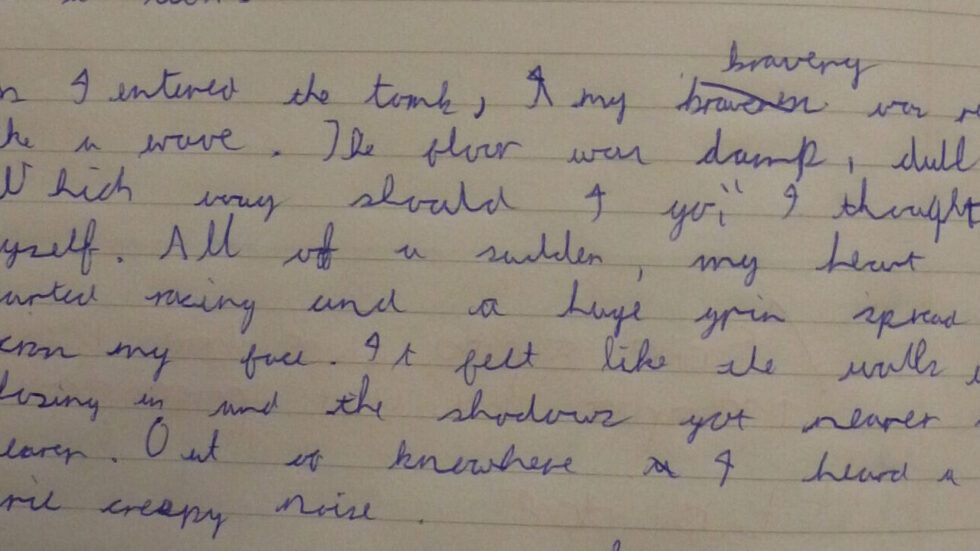 bravery
I entered the tomb, my was
a wave. The floor was damp, dull
Which way should I go," I thought
yself. All of a sudden, my heart
arted racing and a huge grin spread
cross my face. It felt like the walls
losing in and the shadows got nearer
earer. Out of knowhere I heard a
creepy noise.